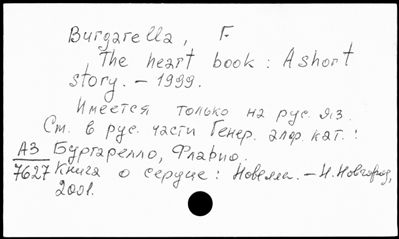 Burgarella, F.
The heart book: A short
story. – 1999.
Имеется только на рус. яз.
См. в рус. части Генер. алф. кат.:
АЗ Бургарелло, Флавио.
7627 Книга о сердце: Новелла. – Н. Новгород,
2001.